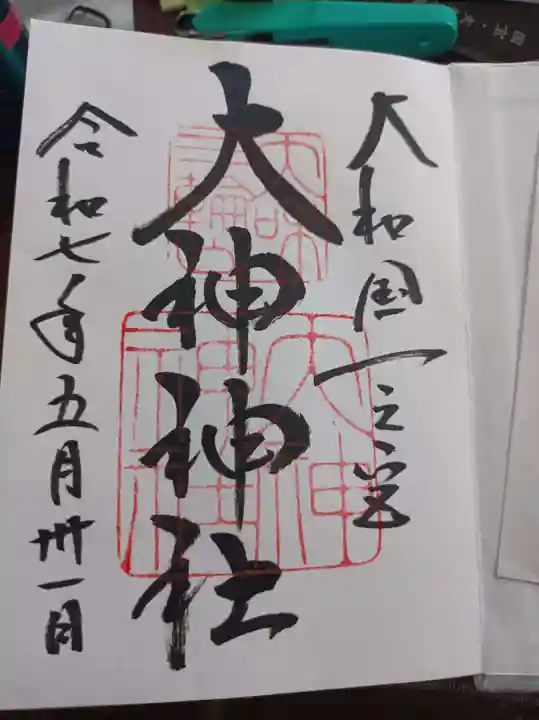 大和国一之宮
大神神社
令和七年五月卅一日
大神
神社